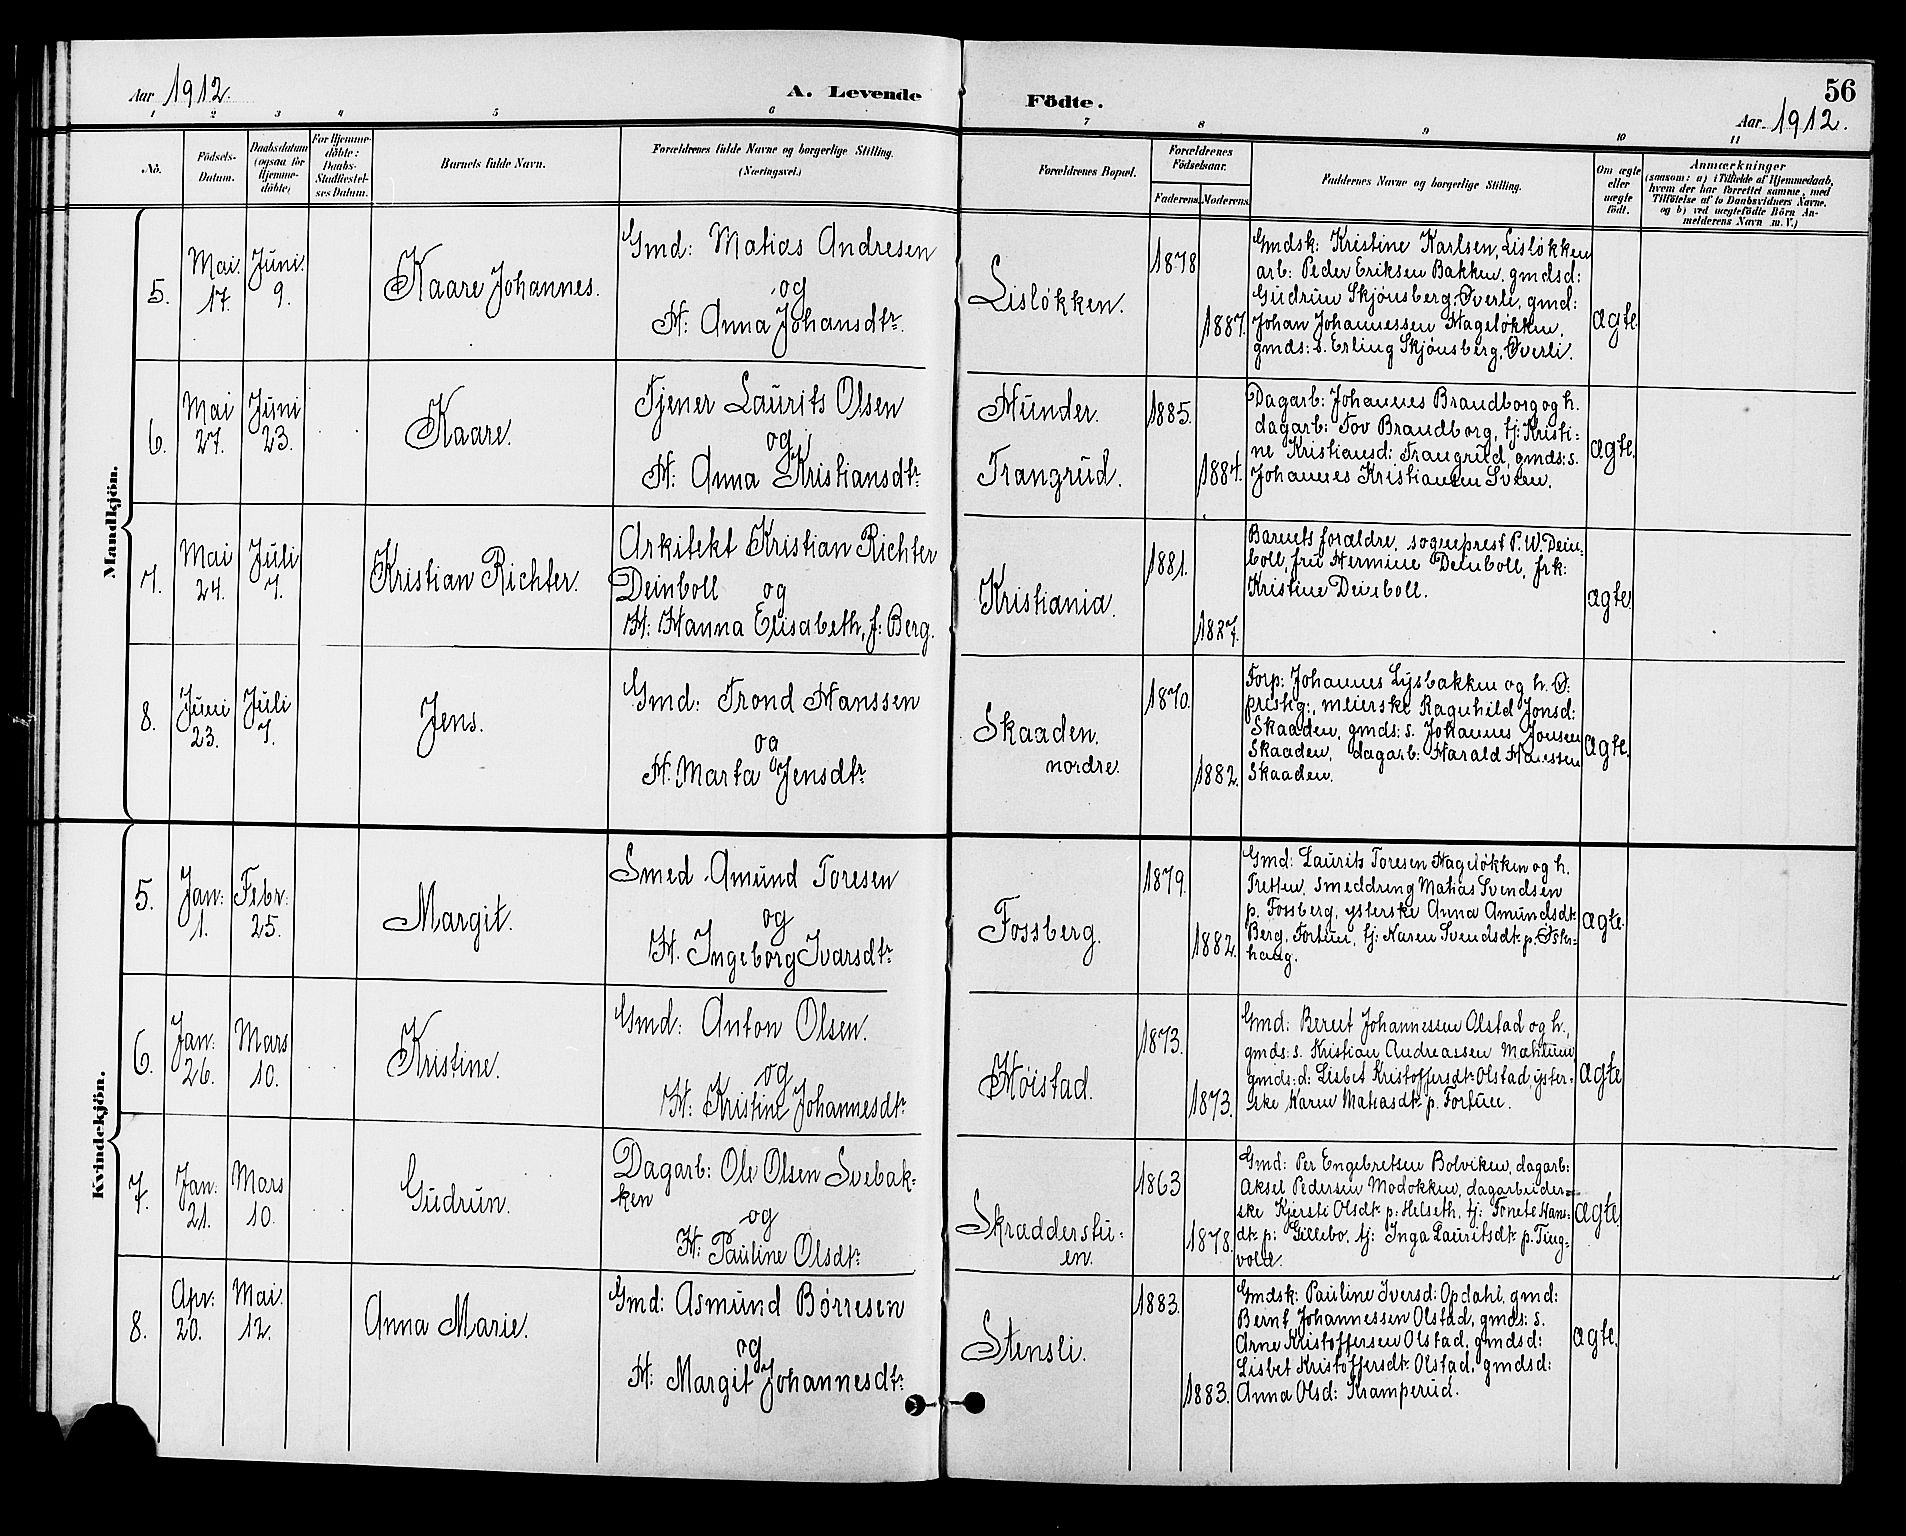 Aar 1912.
A. Levende Födte.
56
Aar 1912.
1 2 3 4 5 6 7 8 9 10 11
No.
Födsels-
Datum.
Daabsdatum
(ogsaa for
Hjemme-
döbte)
For Hjemme-
döbte:
Daabs-
Stadfæstel-
ses Datum.
Barnets fulde Navn.
Forældrenes fulde Navne og borgerlige Stilling.
(Næringsvei.)
Forældrenes Bopæl.
Forældrenes
Födselsaar.
Faderens. Moderens.
Faddernes Navne og borgerlige Stilling.
Om ægte
eller
uægte
födt.
Anmærkninger
(saasom: a) i Tilfælde af Hjemmedaab,
hvem der har forrettet samme, med
Tilföielse af to Daabsvidners Navne.
og b) ved uægtefödte Börn An-
melderens Navn m. V.)
Mandkjön.
5.
Mai
17.
Juni
9.
Kaare Johannes.
Gmd: Matias Andresen
og
H: Anna Johansdtr.
Lisløkken.
1878
1887.
Gmdsk: Kristine Karlsen, Lisløkken
arb: Peder Eriksen Bakken, gmdsd:
Gudrun Skjønsberg, Øverli, gmd:
Johan Johannessen Hageløkken,
gmds: s. Erling Skjønsberg, Øverli.
ægte.
6.
Mai
27.
Juni
23.
Kaare.
Tjener Laurits Olsen
og
H: Anna Kristiansdtr
Hunder.
Trangrud.
1885.
1884.
Dagarb: Johannes Brandborg og h.
dagarb: Tov Brandborg, tj: Kristi=
ne Kristiansd: Trangrud, gmds: s.
Johannes Kristiansen Sveen.
ægte.
7.
Mai
24.
Juli
7.
Kristian Richter.
Arkitekt Kristian Richter
Deinboll og
H: Hanna Elisabeth, f: Berg.
Kristiania.
1881.
1887.
Barnets forældre, sogneprest P. W. Dein=
boll, fru Hermine Deinboll, frk:
Kristine Deinboll.
ægte
8.
Juni
23.
Juli
7.
Jens.
Gmd: Trond Hanssen
og
H: Marta Jensdtr
Skaaden.
nordre.
1870.
1882.
Forp: Johannes Lysbakken og h. Ø:
prestg:, meierske Ragnhild Jonsd:
Skaaden, gmds: s. Johannes Jonsen
Skaaden, dagarb: Harald Hanssen
Skaaden.
ægte.
Kvindekjön.
5.
Jan:
1.
Febr:
25.
Margit.
Smed Amund Toresen
og
H. Ingeborg Ivarsdtr
Fossberg.
1879.
1882.
Gmd: Laurits Toresen Hageløkken og h.
Tretten, smeddreng Matias Svendsen
p. Fossberg, ysterske Anna Amundsdtr
Berg, Fortun, tj: Karen Svendsdtr p. Øster-
haug.
ægte.
6.
Jan:
26.
Mars
10.
Kristine.
Gmd: Anton Olsen.
og
H: Kristine Johannesdtr
Höistad.
1873.
1873.
Gmd: Bernt Johannessen Olstad og h.,
gmds: s. Kristian Andreassen Mæhlum
gmds: d: Lisbet Kristoffersdtr Olstad, yster-
ske Karen Matiasdtr p. Fortun.
ægte
7.
Jan:
21.
Mars
10.
Gudrun.
Dagarb: Ole Olsen Svebak=
ken
og
H: Pauline Olsdtr
Skradderstu=
en.
1863
1878.
Gmd: Per Engebretsen Bolviken, dagarb:
Aksel Pedersen Modokken, dagarbeider=
ske Kjersti Olsdtr p: Helseth, tj: Tonete Hans=
dtr p: Gillebo, tj: Inga Lauritsdtr p. Ting=
vold.
ægte
8.
Apr:
20.
Mai.
12.
Anna Marie.
Gmd: Asmund Børresen
og
H: Margit Johannesdtr
Stensli.
1883.
1883.
Gmdsk: Pauline Iversd: Opdahl, gmd:
Bernt Johannessen Olstad, gmds: s.
Arne Kristoffersen Olstad, gmdsd:
Lisbet Kristoffersdtr Olstad, gmdsd:
Anna Olsd: Kramperud.
ægte.